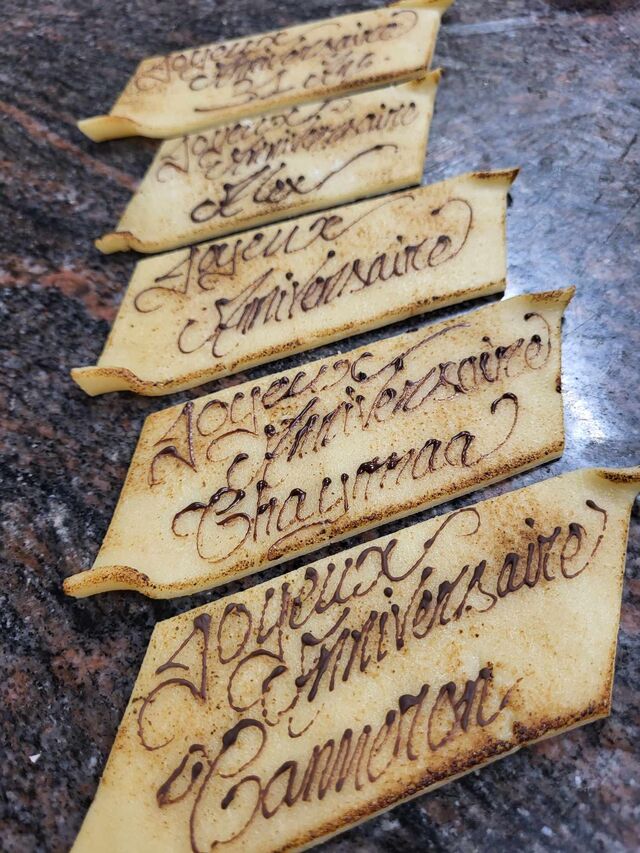 Joyeux
Anniversaire
Joyeux
Anniversaire
Alex
Joyeux
Anniversaire
Joyeux
Anniversaire
Joyeux
Anniversaire